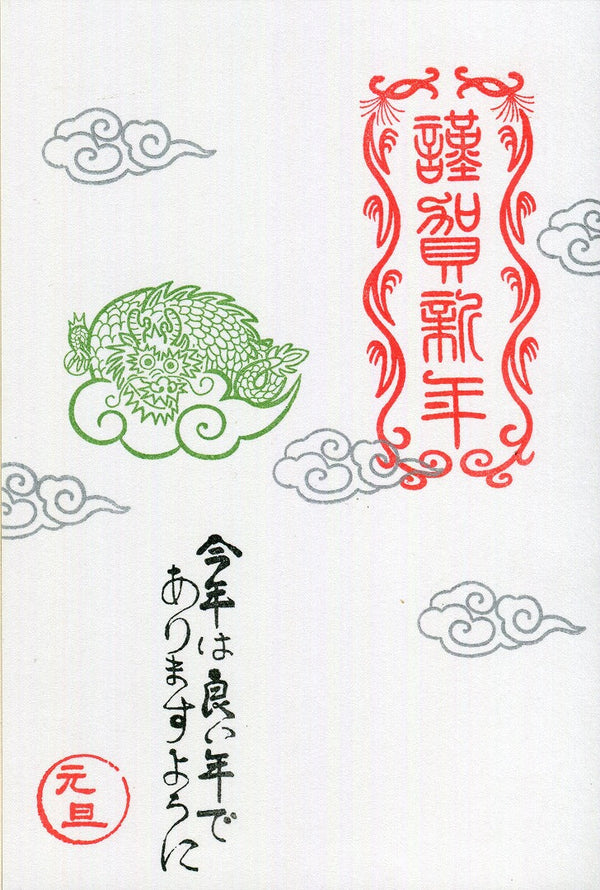 謹賀新年
今年は良い年で
ありますように
元旦